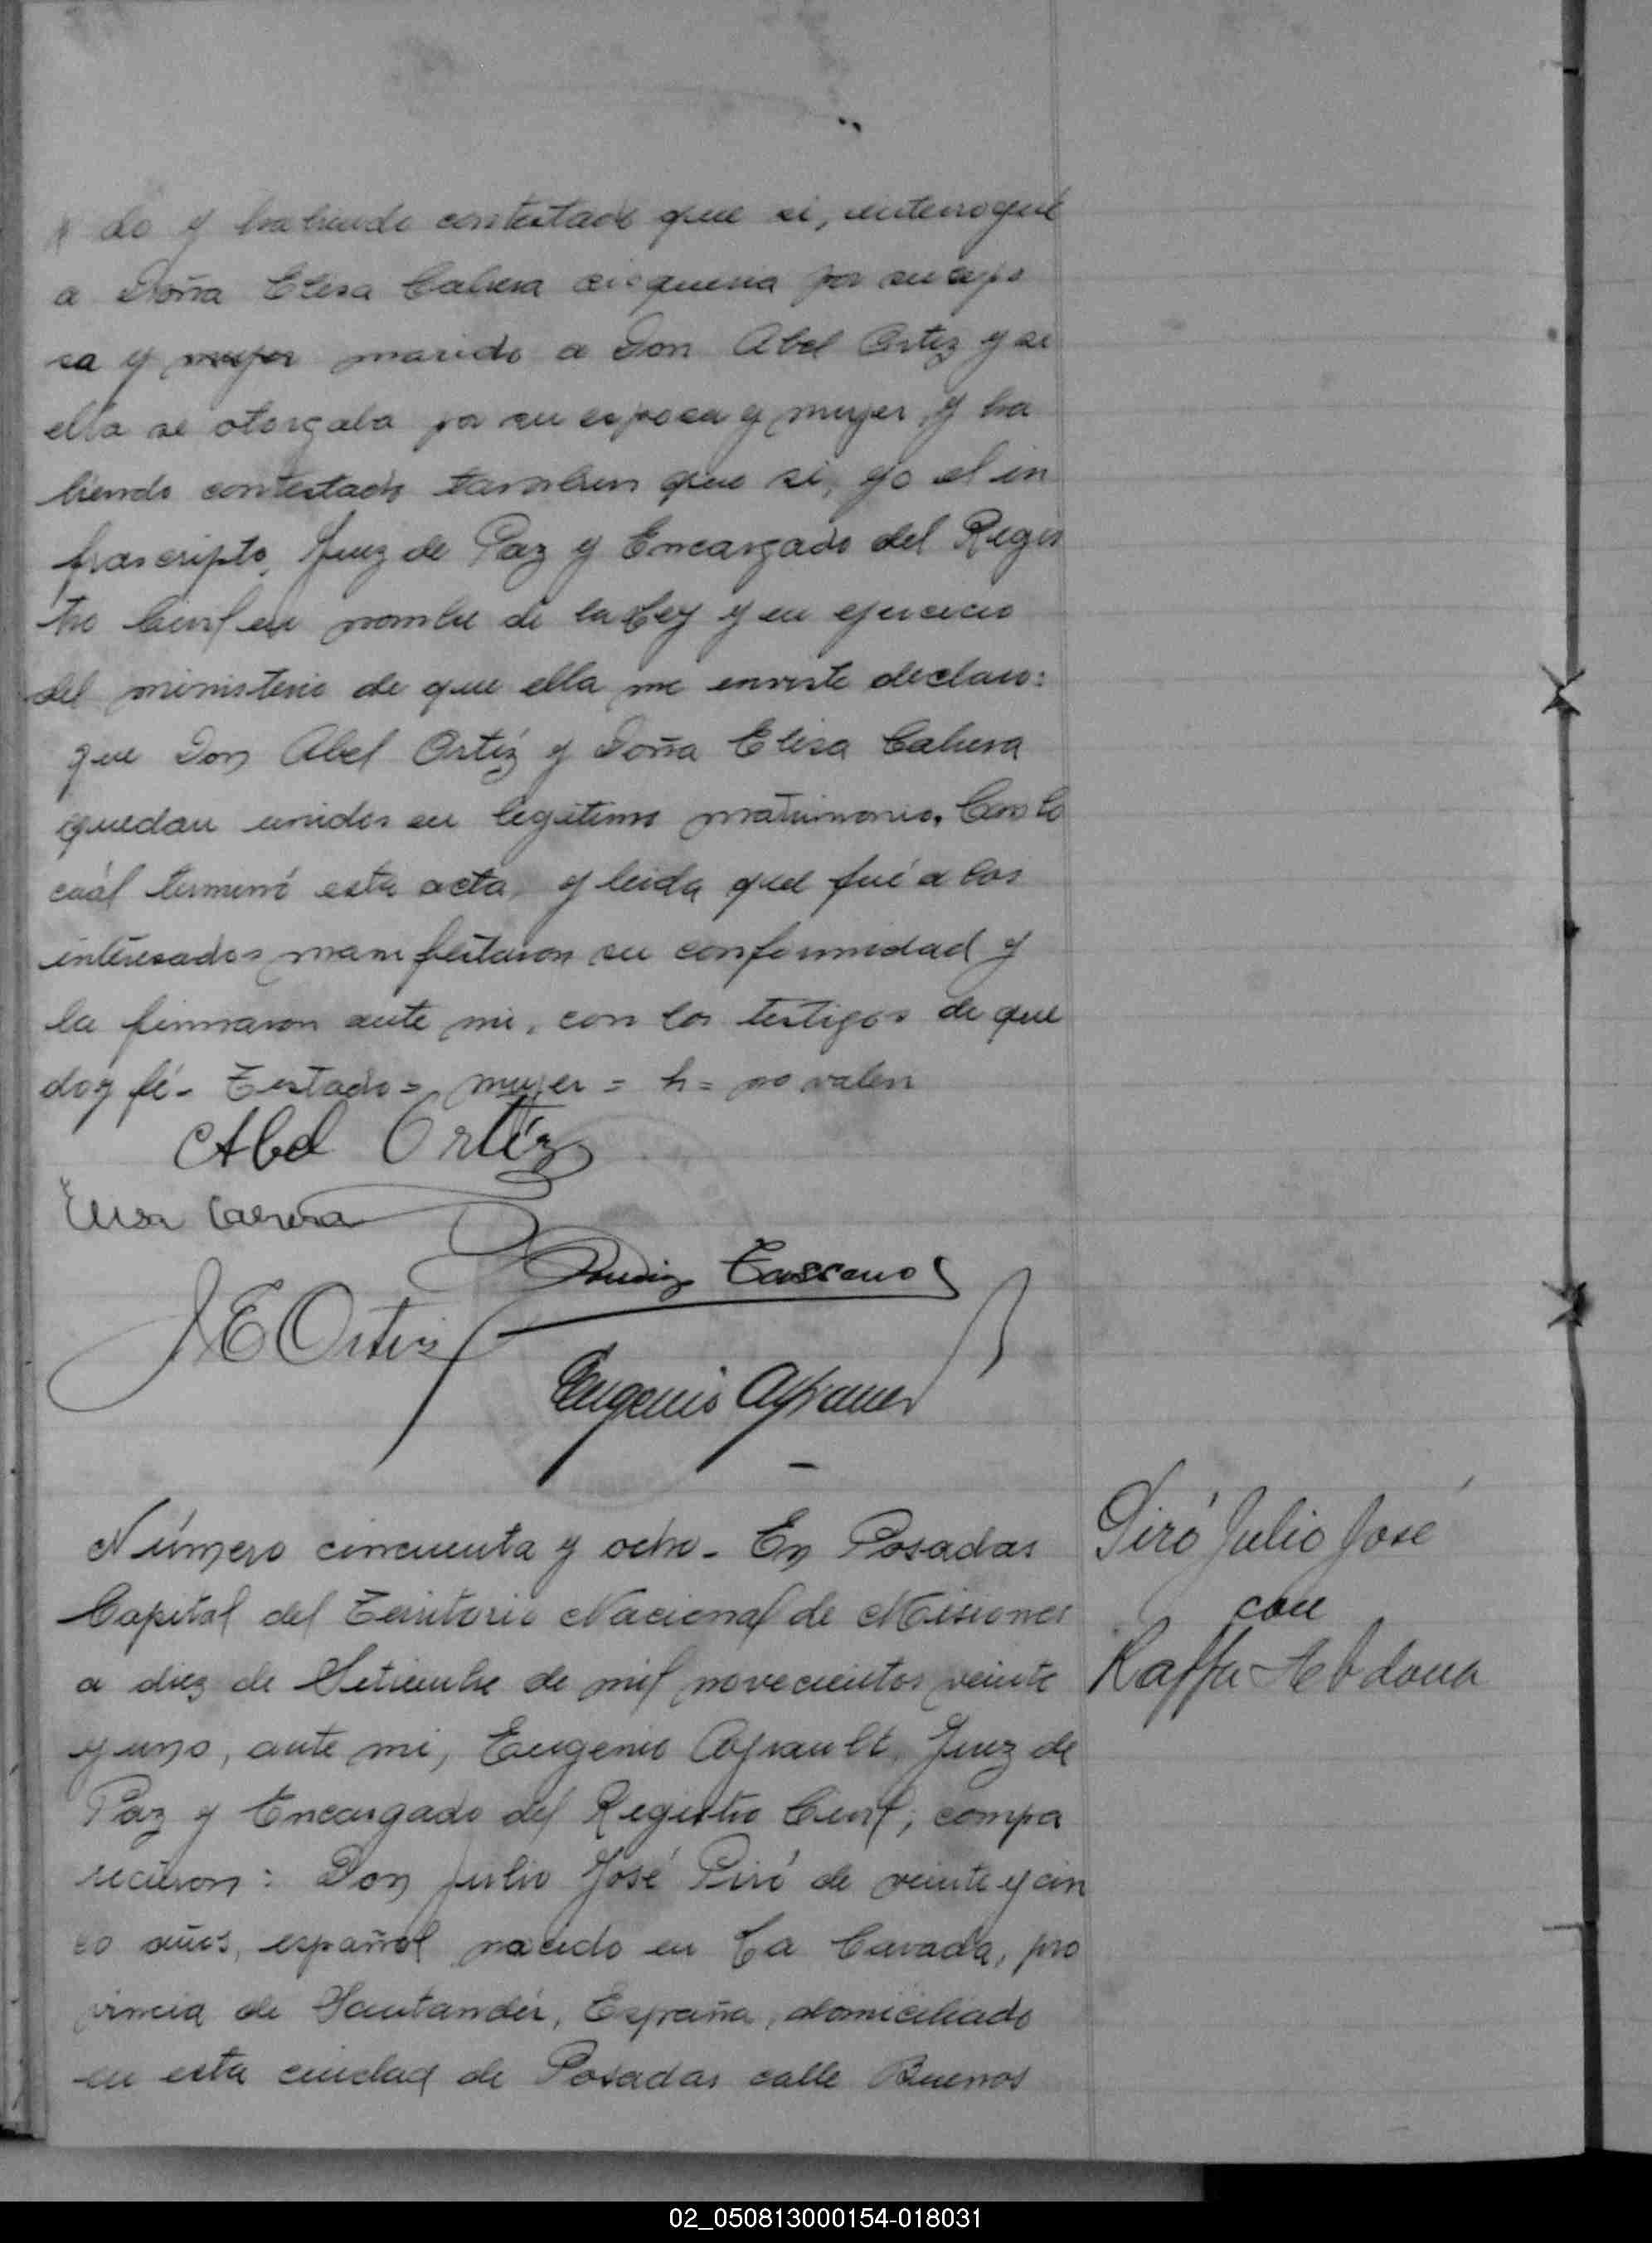 do y habiendo contestado que si, interrogué
a Doña Elisa Cabrera si queria por su espo
sa y mujer marido a Don Abel Ortiz y si
ella se otorgaba por su esposa y mujer y ha
biendo contestado tambien que si, yo el in
frascripto, Juez de Paz y Encargado del Regis
tro Civil en nombre de la Ley y en ejercicio
del ministerio de que ella me enviste declaro:
que Don Abel Ortíz y Doña Elisa Cabrera
quedan unidos en legitimo matrimonio. Con lo
cuál terminó esta acta, y leida que fué a los
interesados manifestaron su conformidad y
la firmaron ante mi, con los testigos de que
doy fé - Testado = mujer = h = no valen
Abel Ortíz
Elisa Cabrera
Tassano
J E Ortiz
Eugenio
Número cincuenta y ocho - En Posadas
Capital del Territorio Nacional de Misiones
a diez de Setiembre de mil novecientos veinte
y uno, ante mi, Eugenio Juez de
Paz y Encargado del Registro Civil; compa
recieron: Don Julio José Piró de veinte y cin
co años, español nacido en La Cavada, pro
vincia de Santander, España, domiciliado
en esta ciudad de Posadas calle Buenos
Piró Julio José
con
Raffa Abdona
02_050813000154-018031